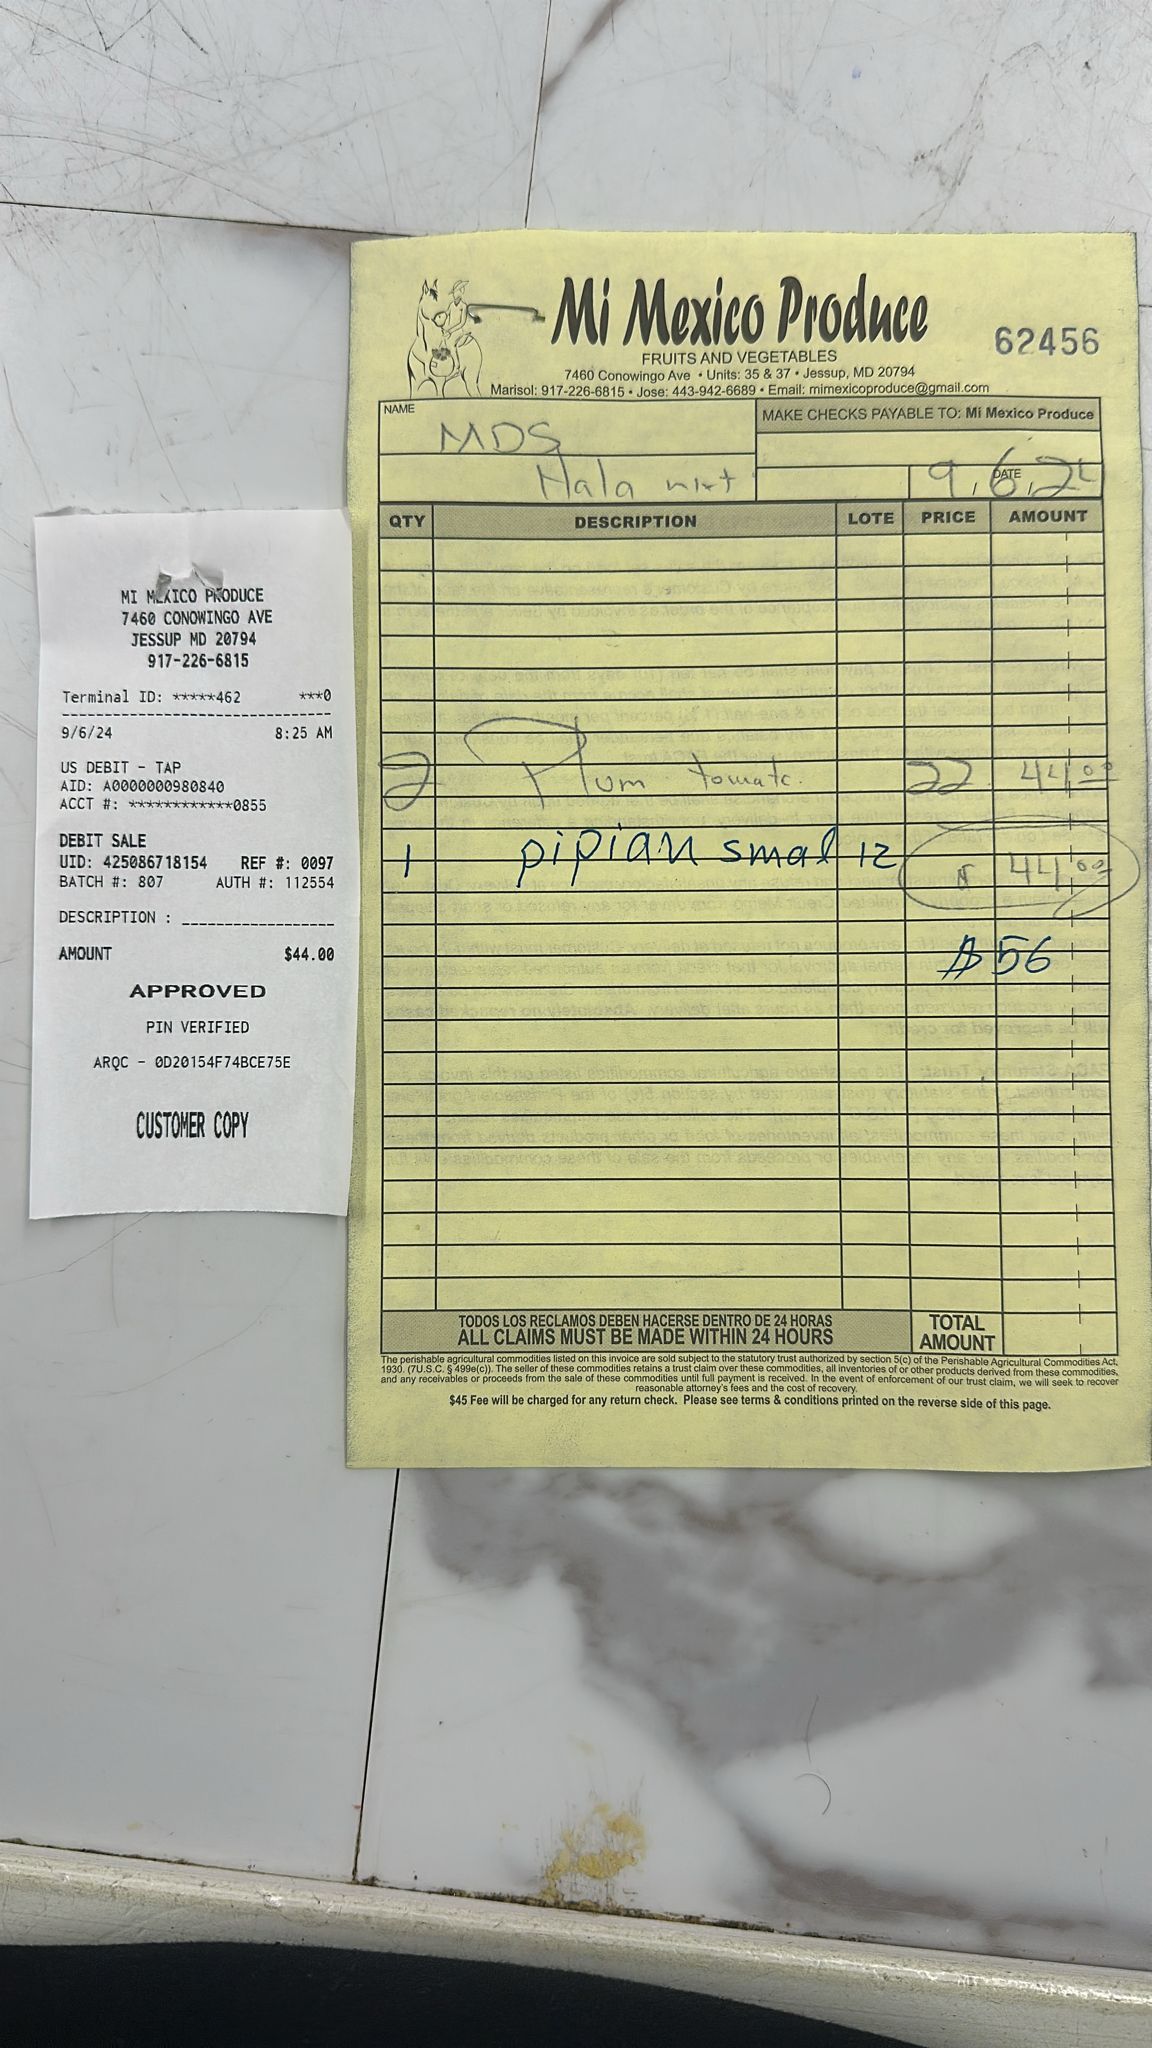 MI MEXICO PRODUCE
7460 CONOWINGO AVE
JESSUP MD 20794
917-226-6815
Terminal ID: *****462 ***0
9/6/24 8:25 AM
US DEBIT - TAP
AID: A0000000980840
ACCT #: ************0855
DEBIT SALE
UID: 425086718154 REF #: 0097
BATCH #: 807 AUTH #: 112554
DESCRIPTION :
AMOUNT $44.00
APPROVED
PIN VERIFIED
ARQC - 0D20154F74BCE75E
CUSTOMER COPY
Mi Mexico Produce
62456
FRUITS AND VEGETABLES
7460 Conowingo Ave • Units: 35 & 37 • Jessup, MD 20794
Marisol: 917-226-6815 • Jose: 443-942-6689 • Email: mimexicoproduce@gmail.com
NAME
MDS
MAKE CHECKS PAYABLE TO: Mi Mexico Produce
Hala
DATE
9.6.24
QTY DESCRIPTION LOTE PRICE AMOUNT
2 Plum tomato 22 44 00
1 pipian smal 12
44 00
$56
TODOS LOS RECLAMOS DEBEN HACERSE DENTRO DE 24 HORAS
ALL CLAIMS MUST BE MADE WITHIN 24 HOURS
TOTAL
AMOUNT
The perishable agricultural commodities listed on this invoice are sold subject to the statutory trust authorized by section 5(c) of the Perishable Agricultural Commodities Act,
1930. (7U.S.C. § 499e(c)). The seller of these commodities retains a trust claim over these commodities, all inventories of or other products derived from these commodities,
and any receivables or proceeds from the sale of these commodities until full payment is received. In the event of enforcement of our trust claim, we will seek to recover
reasonable attorney's fees and the cost of recovery.
$45 Fee will be charged for any return check. Please see terms & conditions printed on the reverse side of this page.